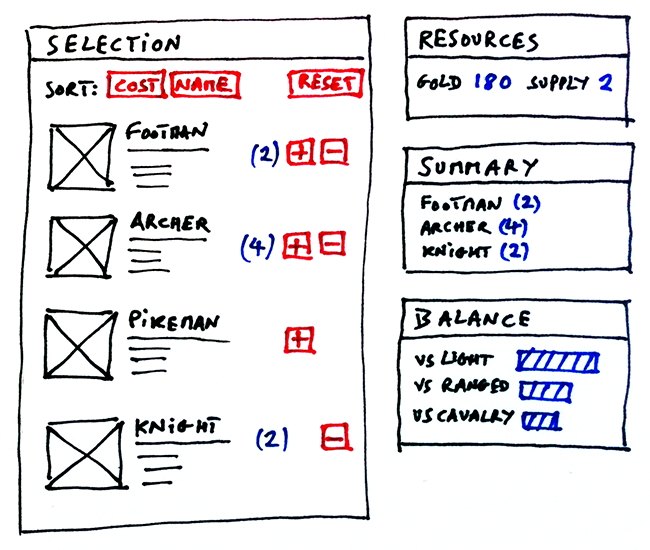 SELECTION
SORT: COST NAME RESET
FOOTMAN
(2) + -
ARCHER
(4) + -
PIKEMAN
+
KNIGHT
(2) -
RESOURCES
GOLD 180 SUPPLY 2
SUMMARY
FOOTMAN (2)
ARCHER (4)
KNIGHT (2)
BALANCE
VS LIGHT
VS RANGED
VS CAVALRY